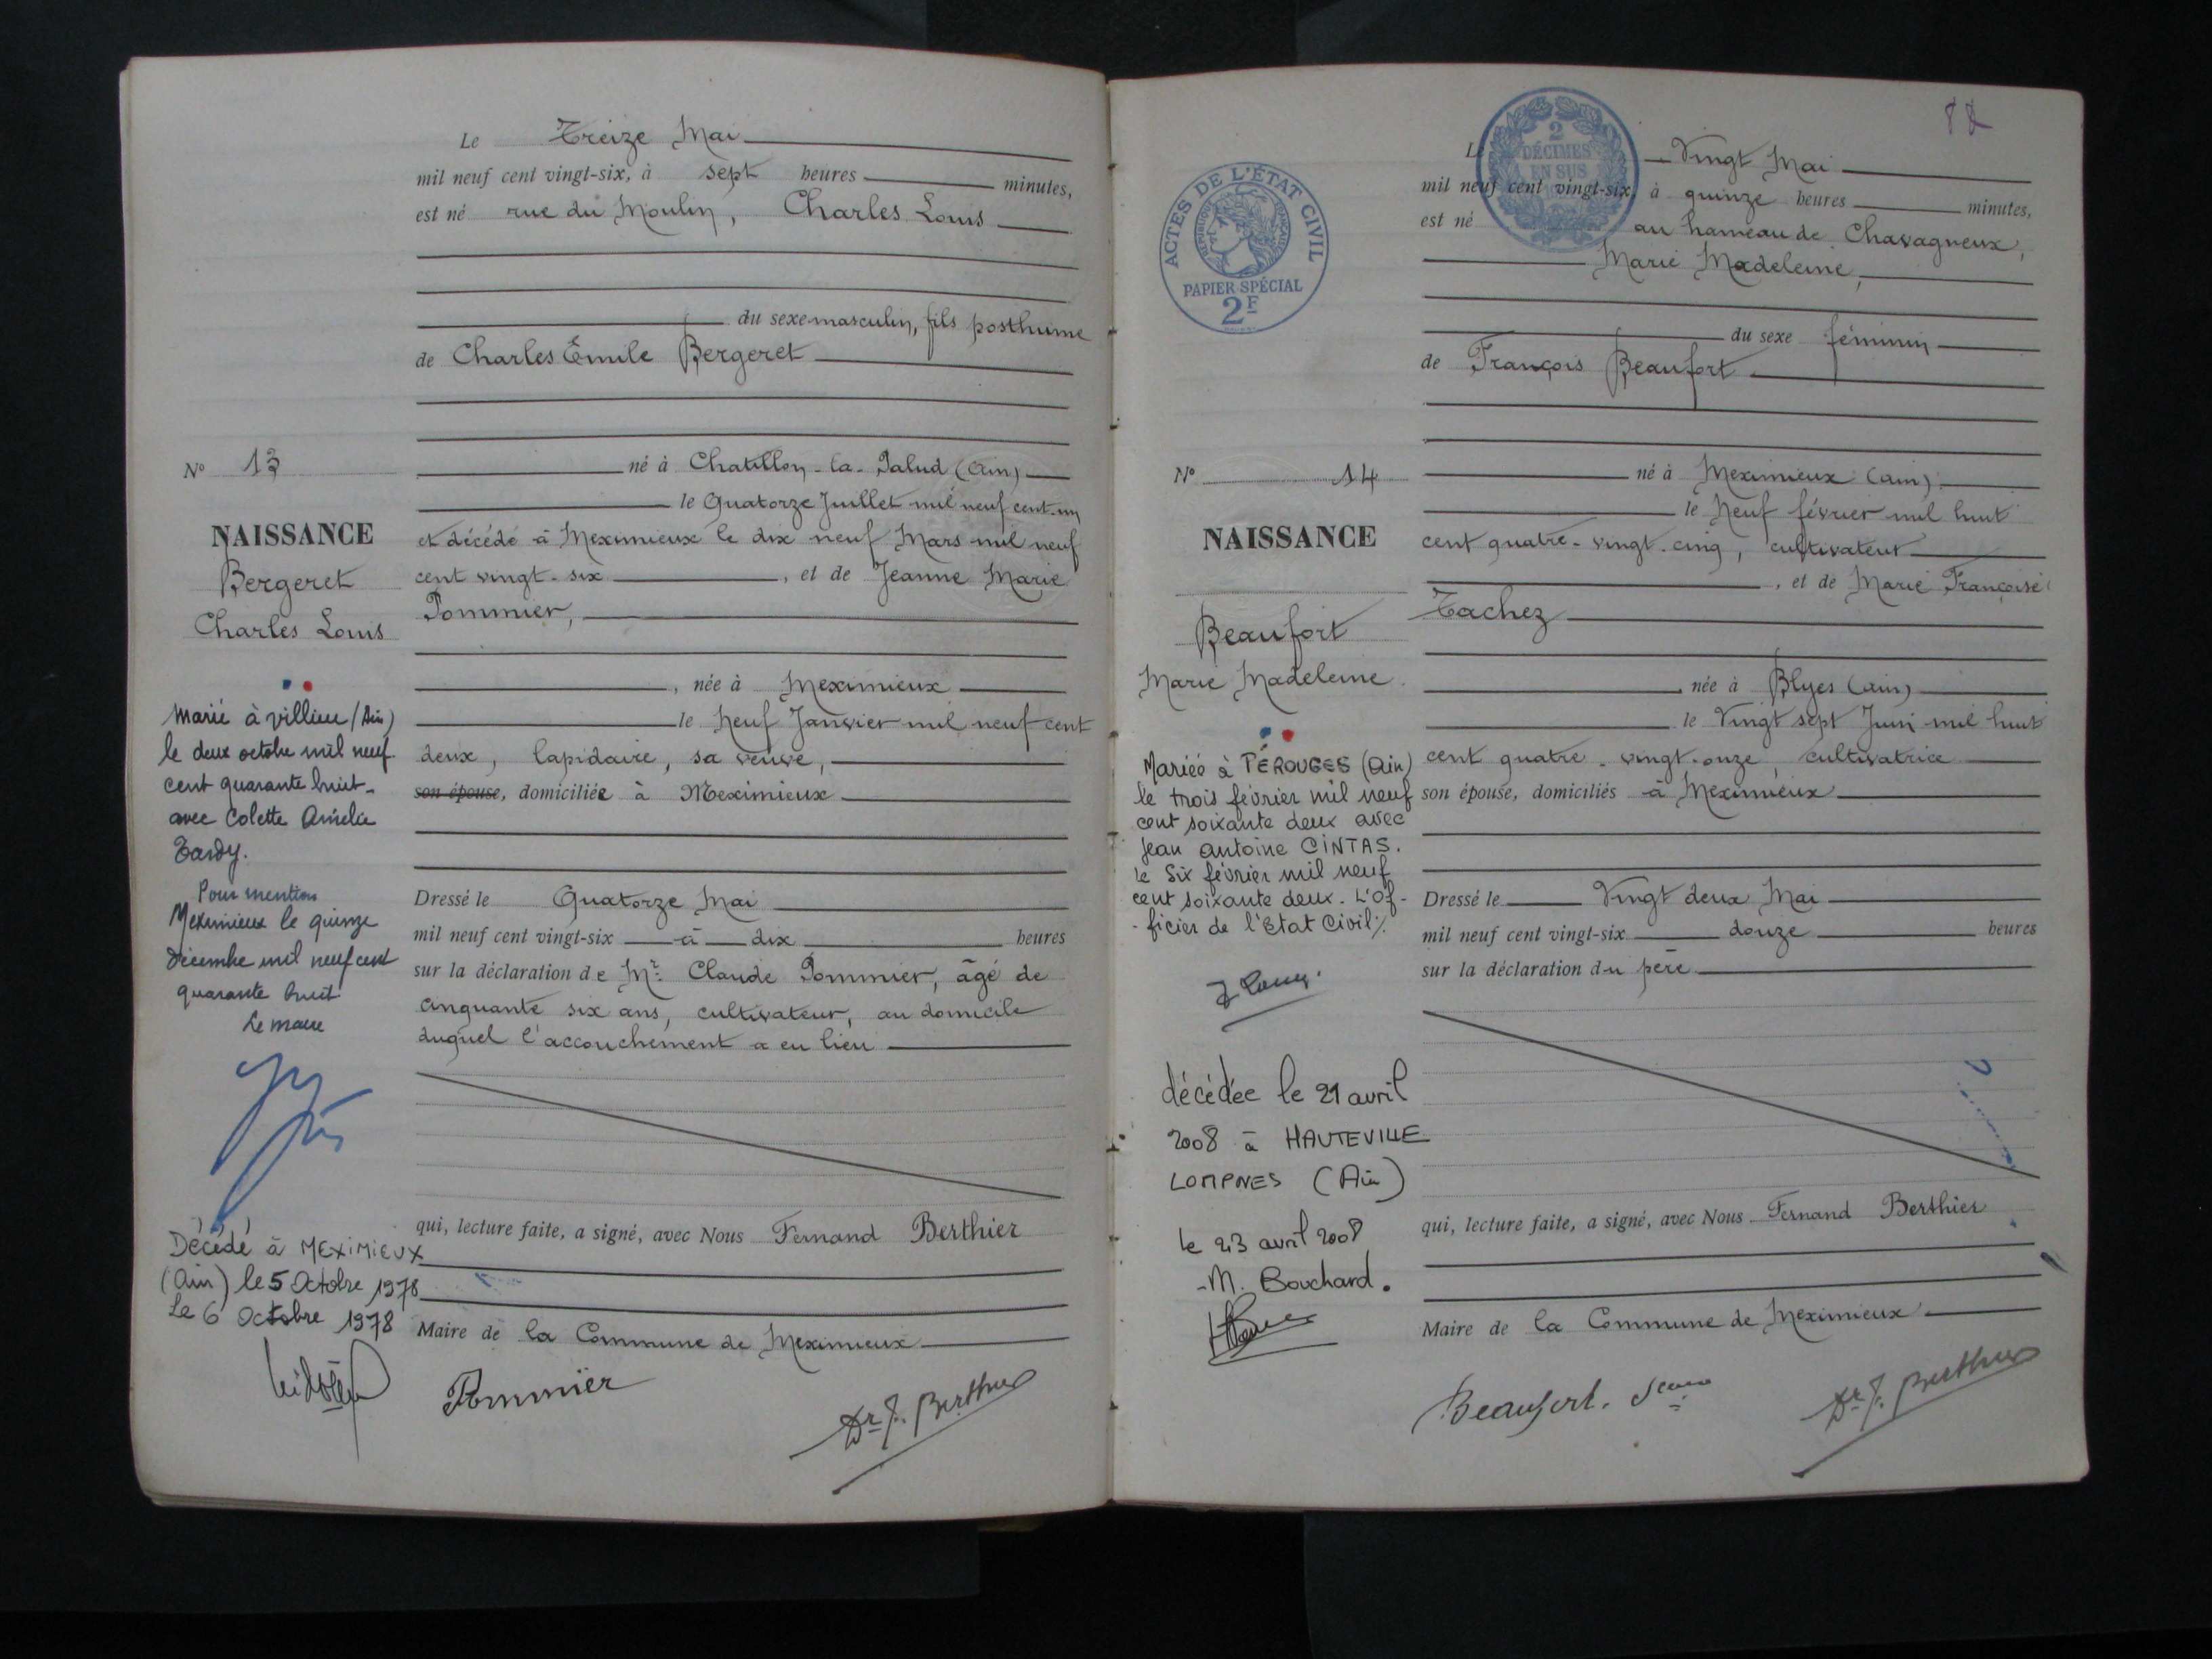 Le Treize Mai
mil neuf cent vingt-six, à sept heures minutes,
est né rue du Moulin, Charles Louis
du sexe masculin, fils posthume
de Charles Émile Bergeret
né à Chatillon-la-Palud (Ain)
le Quatorze Juillet mil neuf cent-un
et décédé à Meximieux le dix neuf Mars mil neuf
cent vingt-six, et de Jeanne Marie
Pommier,
née à Meximieux
le neuf Janvier mil neuf cent
deux, lapidaire, sa veuve,
son épouse, domiciliée à Meximieux
Dressé le Quatorze Mai
mil neuf cent vingt-six à dix heures
sur la déclaration de Mr. Claude Pommier, âgé de
cinquante six ans, cultivateur, au domicile
duquel l'accouchement a eu lieu
qui, lecture faite, a signé, avec Nous Fernand Berthier
Maire de la Commune de Meximieux
Pommier
Dr F. Berthier
No 13
NAISSANCE
Bergeret
Charles Louis
Marié à Villieu (Ain)
le deux octobre mil neuf
cent quarante huit
avec Colette Amélie
Tardy.
Pour mention
Meximieux le quinze
décembre mil neuf cent
quarante huit
Le maire
Décédé à MEXIMIEUX
(Ain) le 5 Octobre 1978
Le 6 Octobre 1978
2
DÉCIMES
EN SUS
ACTES DE L'ÉTAT CIVIL
RÉPUBLIQUE FRANÇAISE
PAPIER SPÉCIAL
2F
Le Vingt Mai
mil neuf cent vingt-six, à quinze heures minutes,
est né au hameau de Chavagneux,
Marie Madeleine,
du sexe féminin
de François Beaufort
né à Meximieux (Ain)
le neuf février mil huit
cent quatre-vingt-cinq, cultivateur
, et de Marie Françoise
Tachez
née à Blyes (Ain)
le Vingt sept Juin mil huit
cent quatre-vingt-onze, cultivatrice
son épouse, domiciliés à Meximieux
Dressé le Vingt deux Mai
mil neuf cent vingt-six douze heures
sur la déclaration du père
qui, lecture faite, a signé, avec Nous Fernand Berthier
Maire de la Commune de Meximieux
Beaufort.
Dr F. Berthier
No 14
NAISSANCE
Beaufort
Marie Madeleine
Mariée à PÉROUGES (Ain)
le trois février mil neuf
cent soixante deux avec
Jean Antoine CINTAS.
Le Six février mil neuf
cent soixante deux. L'Of-
-ficier de l'Etat Civil
décédée le 21 avril
2008 à HAUTEVILLE
LOMPNES (Ain)
le 23 avril 2008
M. Bouchard.